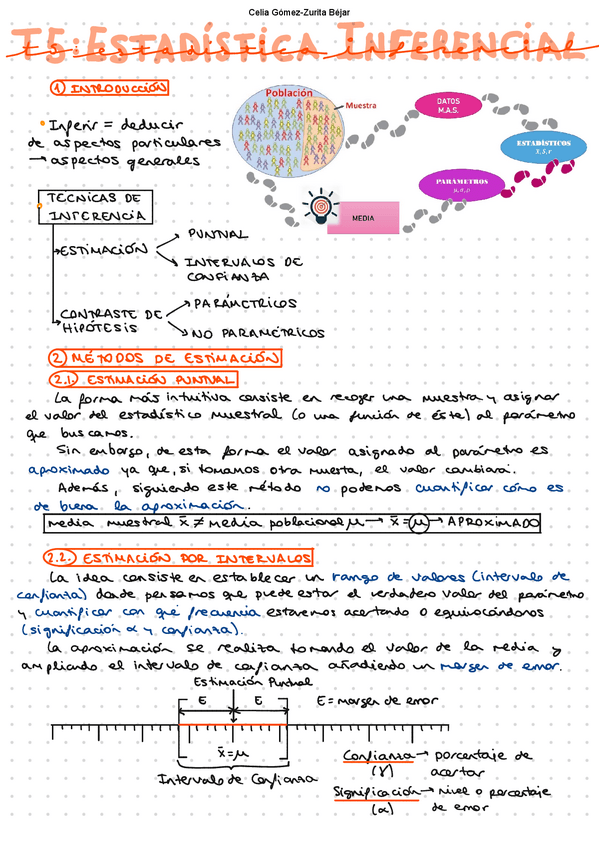 Celia Gómez-Zurita Béjar
T5: ESTADÍSTICA INFERENCIAL
t5: estadística inferencial
1) INTRODUCCIÓN
• Inferir = deducir
de aspectos particulares
→ aspectos generales
Población
Muestra
DATOS
M.A.S.
ESTADÍSTICOS
PARÁMETROS
MEDIA
TÉCNICAS DE
INFERENCIA
ESTIMACIÓN
PUNTUAL
INTERVALOS DE
CONFIANZA
CONTRASTE DE
HIPÓTESIS
PARAMÉTRICOS
NO PARAMÉTRICOS
2) MÉTODOS DE ESTIMACIÓN
2.1.) ESTIMACIÓN PUNTUAL
La forma más intuitiva consiste en recoger una muestra y asignar
el valor del estadístico muestral (o una función de éste) al parámetro
que buscamos.
Sin embargo, de esta forma el valor asignado al parámetro es
aproximado ya que, si tomamos otra muesta, el valor cambiará.
Además, siguiendo este método no podemos cuantificar cómo es
de buena la aproximación.
media muestral x̄ ≠ media poblacional μ → x̄ = μ → APROXIMADO
2.2.) ESTIMACIÓN POR INTERVALOS
La idea consiste en establecer un rango de valores (intervalo de
confianza) donde pensamos que puede estar el verdadero valor del parámetro
y cuantificar con qué frecuencia estaremos acertando o equivocándonos
(significación α y confianza).
La aproximación se realiza tomando el valor de la media y
ampliando el intervalo de confianza añadiendo un margen de error.
Estimación Puntual
E E E = margen de error
x̄ = μ
Intervalo de Confianza
Confianza → porcentaje de
(γ) acertar
Significación → nivel o porcentaje
(α) de error